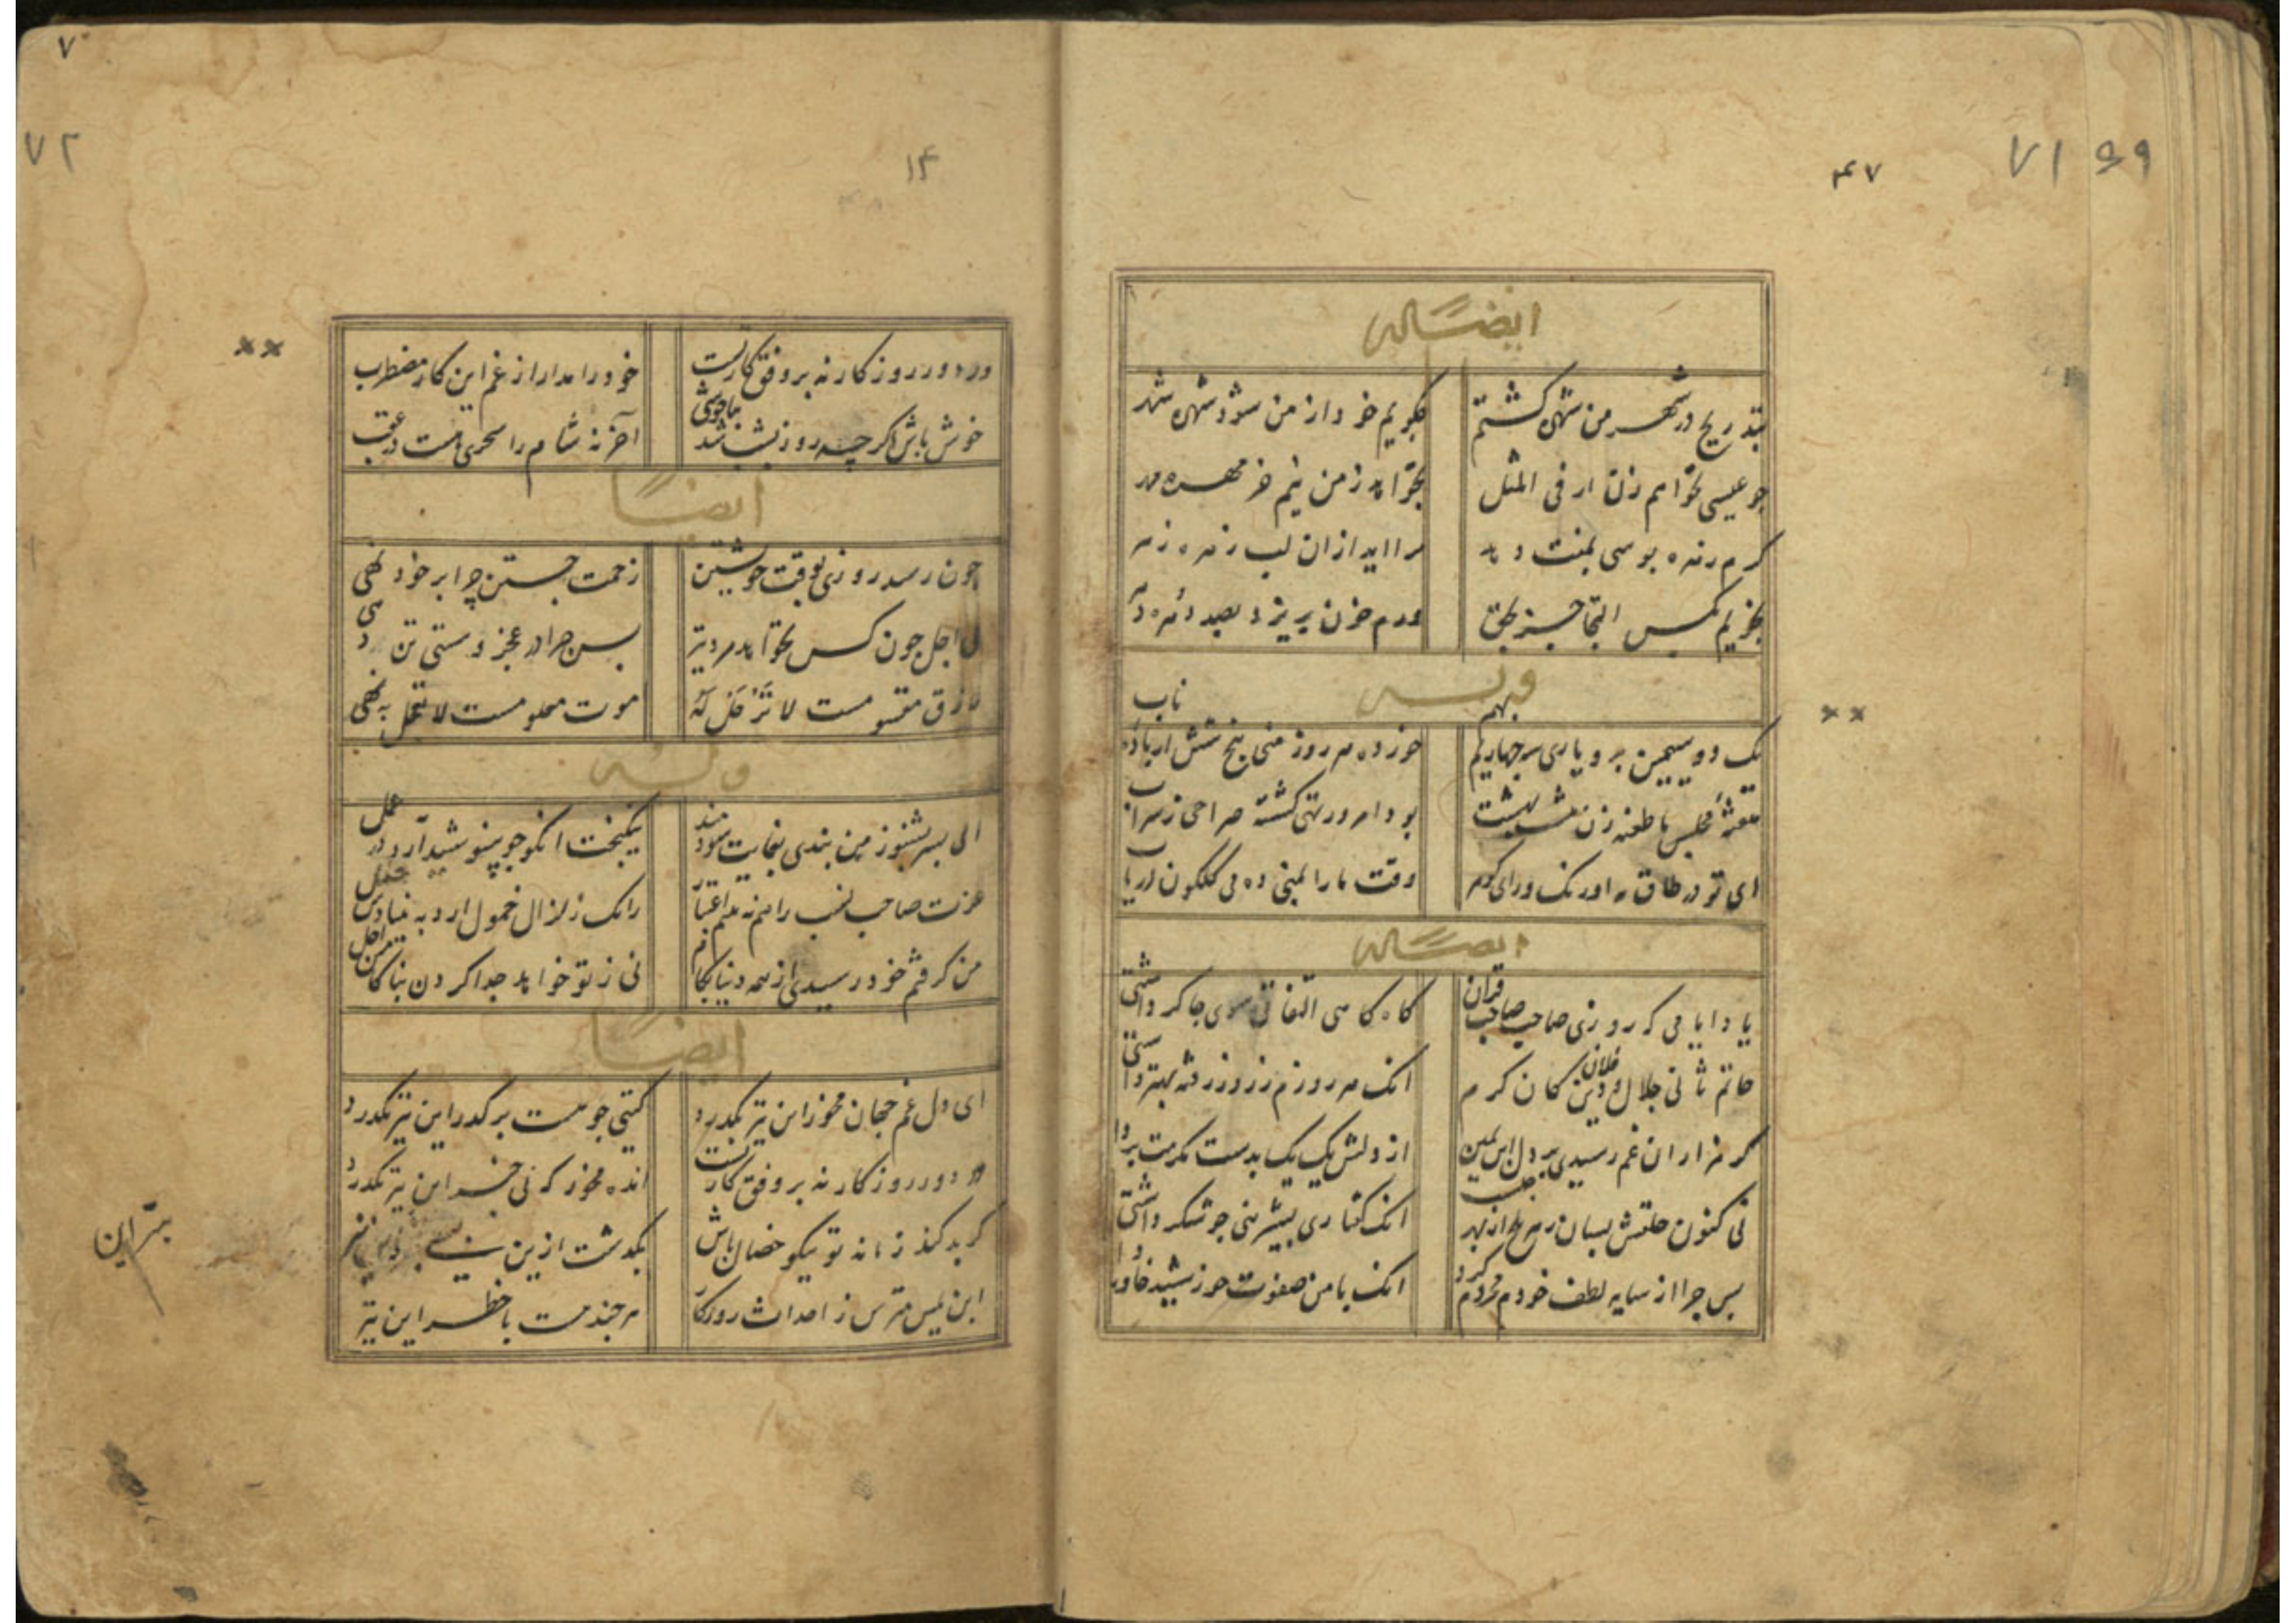 ۷۱
۴۷
ایضاً له
بتدریج در شهر من شهره کشتم
بکویم خود از من سود شهره شهد
جو عیسی نخواهم زنان ار فی المثل
بخواهد ز من نیم خر مهره مهد
کرم زنده بوسی بمنت دهد
مرا اید از ان لب زهره زهد
بکس التجا جز بحق
ورم خون بریزد بصد دهره دهد
وله
یک دو سیمین بر و یاری سه جهاریم بهم
خورده هر روز منی پنج شش از باده ناب
مجلس ما طعنه زن هشت بهشت
بود امروز تهی کشته صراحی ز شراب
ای تو در طاق نه اورنک ورای
وقت ما را بمنی ده می کلکون دریاب
ایضاً له
یاد ایامی که روزی صاحب صاحب قران
کاه کاهی التفاتی سوی جاکر داشتی
حاتم ثانی جلال دین فلان کان کرم
انک هر روزم ز روز رفته بهتر داشتی
کر هزاران غم رسیدی بر دل ابن یمین
از دلش یک یک بدست مکرمت برداشتی
نی کنون حلقش بسان زهر تلخ از بهر جیست
انک کفتاری بشیرینی جو شکر داشتی
بس جرا از سایه لطف خودم محروم کرد
انک با من صفوت خورشید خاور داشتی
۷
۷۲
۱۴
ور دور روزکار نه بر وفق کار تست
خود را مدار از غم این کار مضطرب
خوش باش اکر جه روز بشب شد بناخوشی
آخر نه شام را سحری هست در عقب
ایضاً
جون رسد روزی بوقت خویشتن
زحمت جستن چرا بر خود نهی
بی اجل جون کس نخواهد مرد نیز
بس چرا در عجز و سستی تن دهی
رازق مقسومست لا ترحل له
موت معلومست لا تحفل به
وله
ای پسر بشنو ز من پندی بغایت سودمند
نیکبخت انکو جو بنیوشید آرد در عمل
عزت صاحب نسب را هم نه بینم اعتبار
زانک زلزال خمول ارد به بنیادش خلل
من کرفتم خود رسیدی از همه دنیا بکام
نی ز تو خواهد جدا کردن بناکامش اجل
ایضاً
ای دل غم جهان مخور این نیز بکذرد
کیتی جو هست بر کذر این نیز بکذرد
ور دور روزکار نه بر وفق کار تست
انده مخور که بی خبر این نیز بکذرد
کر بد کند زمانه تو نیکو خصال باش
بکذشت ازین بسی بسر این نیز
ابن یمین مترس ز احداث روزکار
هرچند هست با خطر این نیز